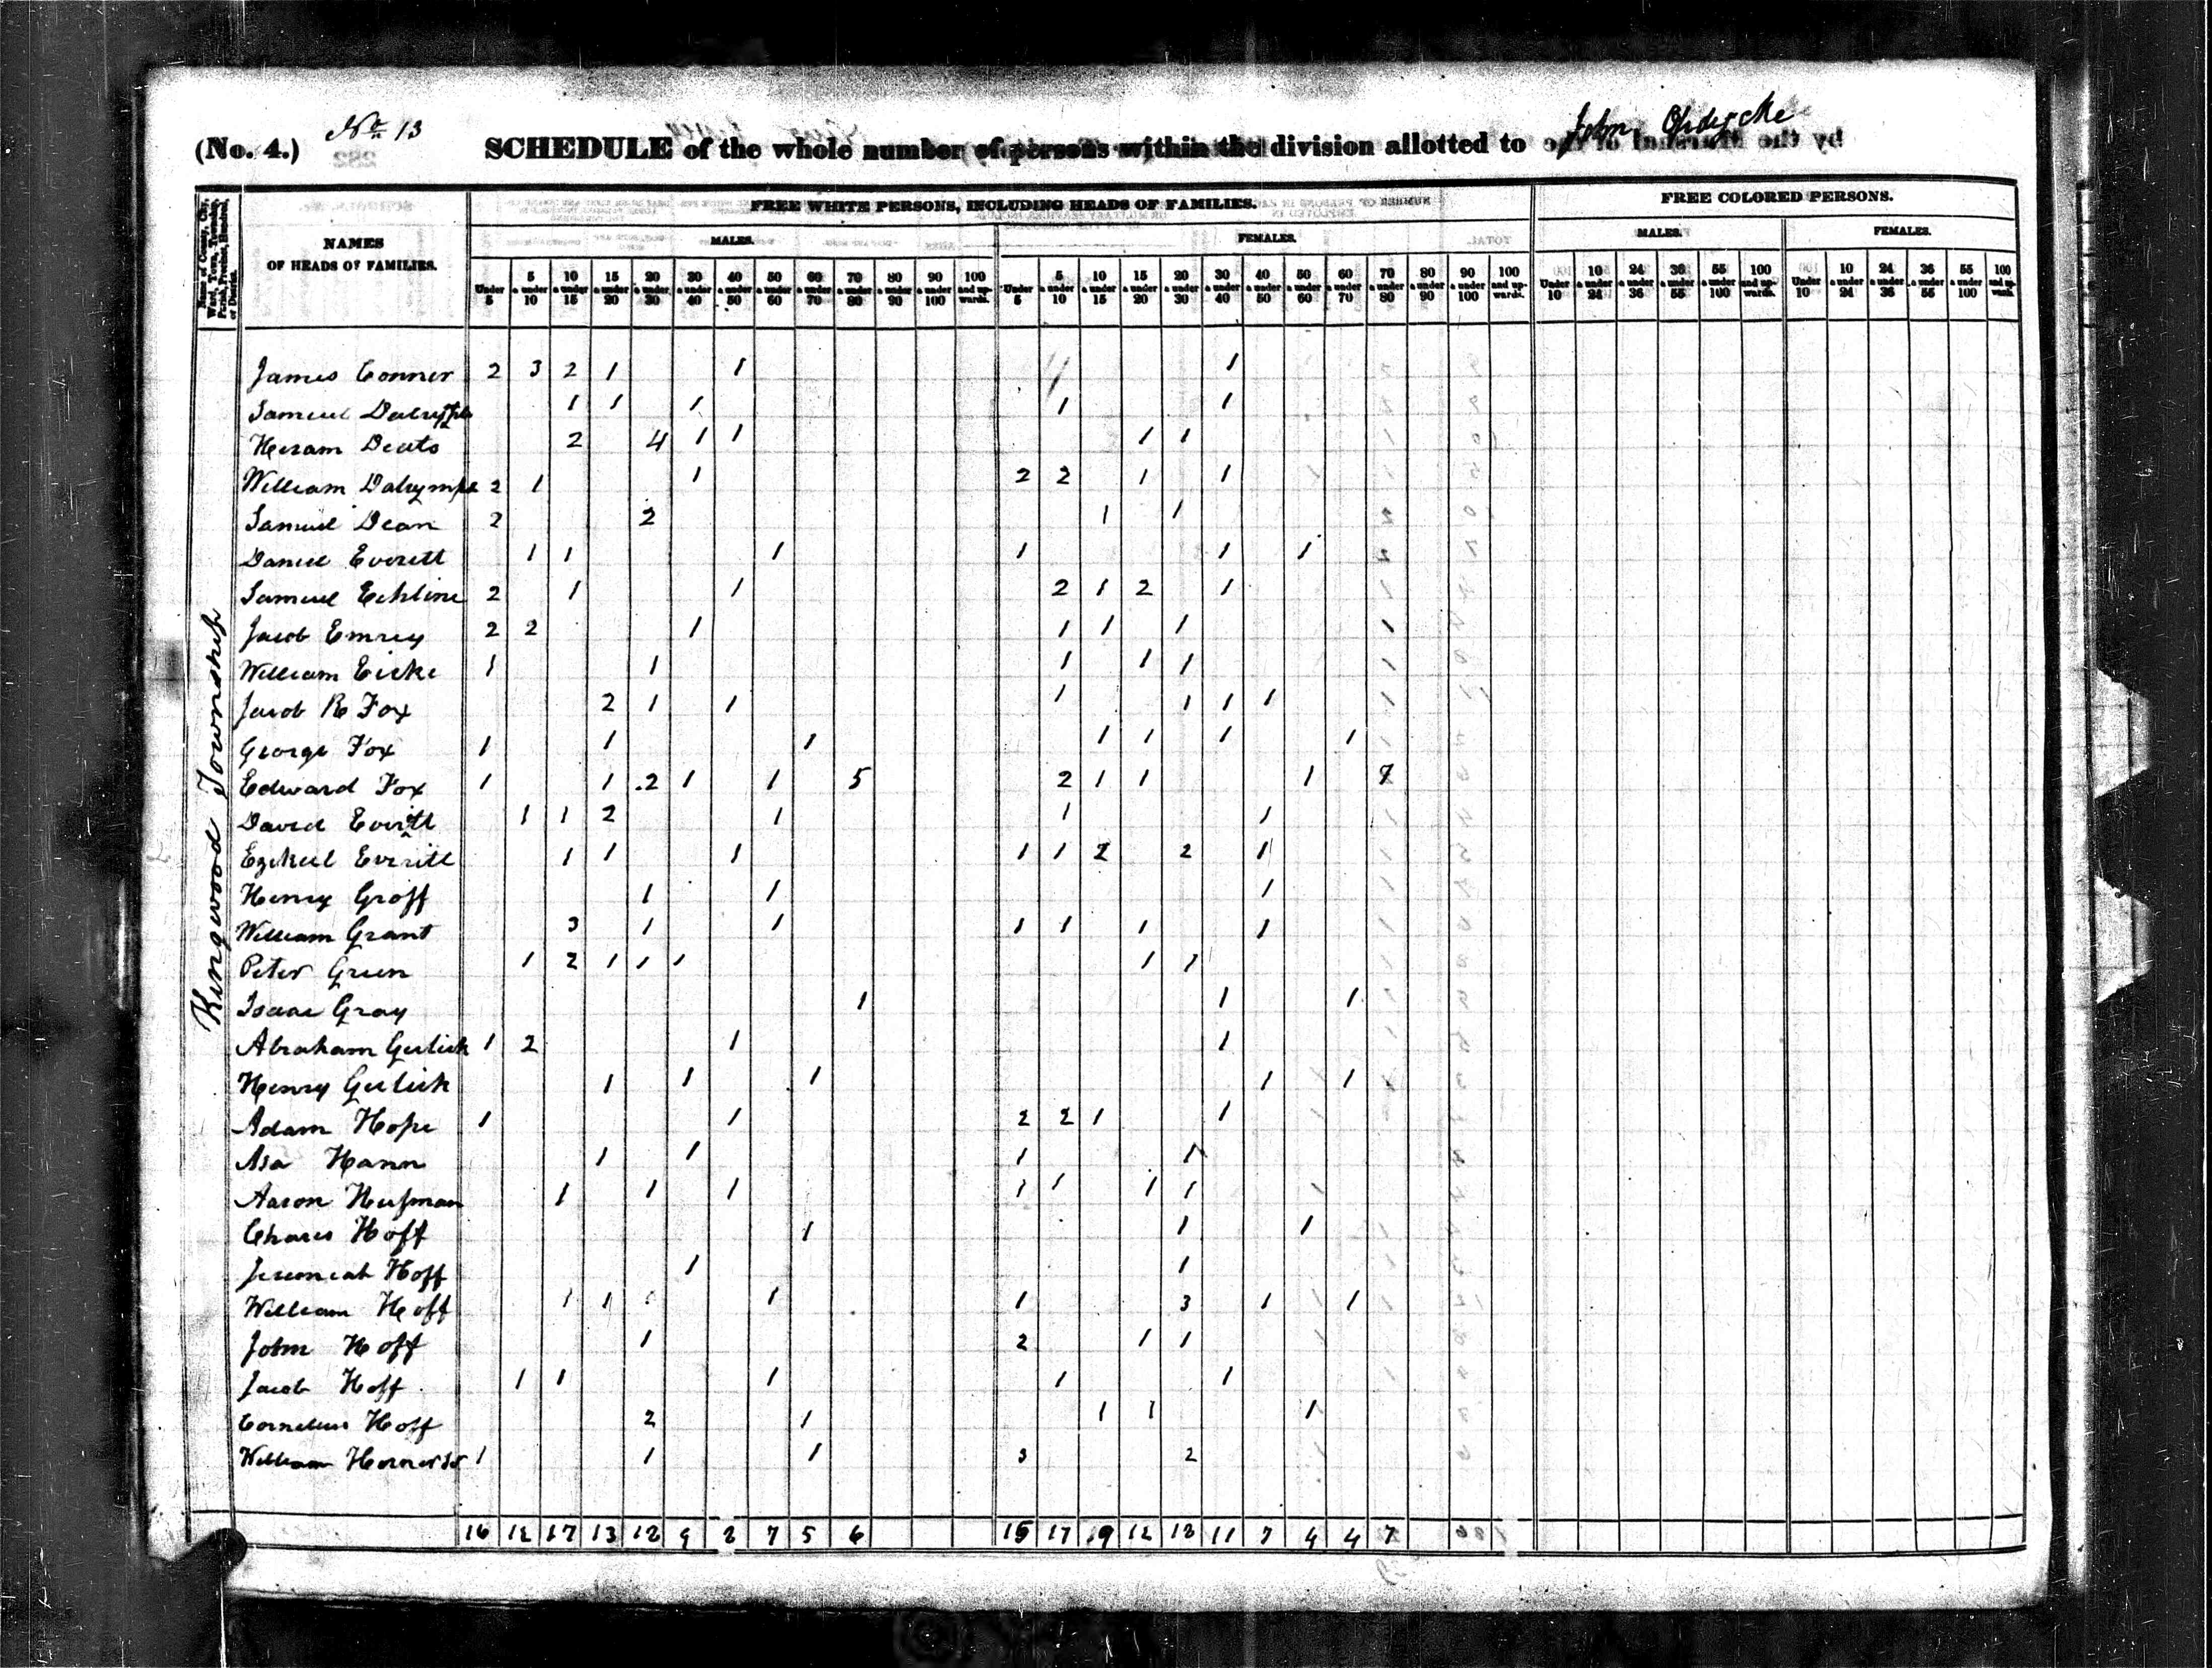 No 13
(No. 4.) SCHEDULE of the whole number of persons within the division allotted to John Opdycke
Name of County, City, Ward, Town, Township, Parish, Precinct, Hundred, or District.
NAMES OF HEADS OF FAMILIES.
FREE WHITE PERSONS, INCLUDING HEADS OF FAMILIES.
FREE COLORED PERSONS.
MALES. FEMALES. MALES. FEMALES.
Under 5 | 5 & under 10 | 10 & under 15 | 15 & under 20 | 20 & under 30 | 30 & under 40 | 40 & under 50 | 50 & under 60 | 60 & under 70 | 70 & under 80 | 80 & under 90 | 90 & under 100 | 100 and upwards. | Under 5 | 5 & under 10 | 10 & under 15 | 15 & under 20 | 20 & under 30 | 30 & under 40 | 40 & under 50 | 50 & under 60 | 60 & under 70 | 70 & under 80 | 80 & under 90 | 90 & under 100 | 100 and upwards. | Under 10 | 10 & under 24 | 24 & under 36 | 36 & under 55 | 55 & under 100 | 100 and upwards. | Under 10 | 10 & under 24 | 24 & under 36 | 36 & under 55 | 55 & under 100 | 100 and upwards.
Kingwood Township
James Conner 2 3 2 1 1 1
Samuel Dalrymple 1 1 1 1 1
Hiram Deats 2 4 1 1 1 1
William Dalrymple 2 1 1 2 2 1 1
Samuel Dean 2 2 1 1
Daniel Everett 1 1 1 1 1 1
Samuel Echline 2 1 1 2 1 2 1
Jacob Emrey 2 2 1 1 1 1
William Eicke 1 1 1 1 1
Jacob R Fox 2 1 1 1 1 1 1
George Fox 1 1 1 1 1 1 1
Edward Fox 1 1 2 1 1 5 2 1 1 1 7
David Everitt 1 1 2 1 1 1
Ezekiel Everitt 1 1 1 1 1 2 2 1
Henry Groff 1 1 1
William Grant 3 1 1 1 1 1 1
Peter Green 1 2 1 1 1 1 1
Isaac Gray 1 1 1
Abraham Gulick 1 2 1 1
Henry Gulick 1 1 1 1 1
Adam Hope 1 1 2 2 1 1
Asa Hann 1 1 1 1
Aaron Hufman 1 1 1 1 1 1 1
Charles Hoff 1 1 1
Jeremiah Hoff 1 1
William Hoff 1 1 1 1 3 1 1
John Hoff 1 2 1 1
Jacob Hoff 1 1 1 1 1
Cornelius Hoff 2 1 1 1 1
William Horner Sr 1 1 1 3 2
16 12 17 13 12 9 8 7 5 6 15 17 9 12 18 11 7 4 4 7